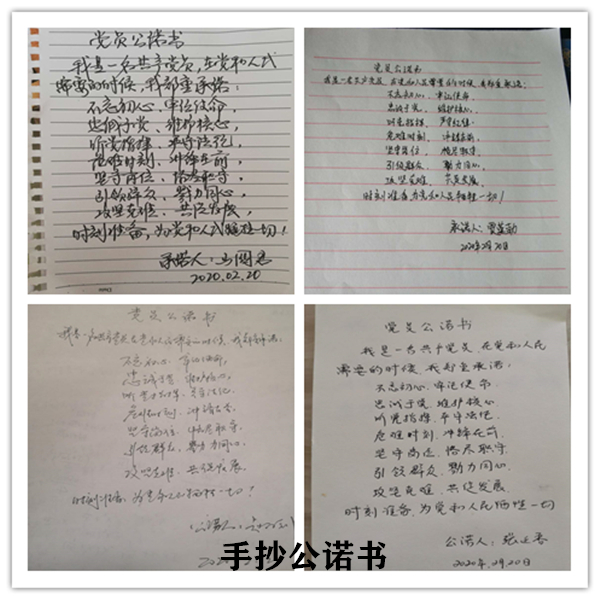 党员公诺书
我是一名共产党员,在党和人民
需要的时候,我郑重承诺:
不忘初心,牢记使命,
忠诚于党,维护核心,
听党指挥,严守法纪,
危难时刻,冲锋在前,
坚守岗位,恪尽职守,
引领群众,勠力同心,
攻坚克难,共促发展,
时刻准备,为党和人民牺牲一切!
承诺人:
2020.02.20
党员公诺书
我是一名共产党员,在党和人民需要的时候,我郑重承诺:
不忘初心,牢记使命,
忠诚于党,维护核心,
听党指挥,严守法纪,
危难时刻,冲锋在前,
坚守岗位,恪尽职守,
引领群众,勠力同心,
攻坚克难,共促发展,
时刻准备为党和人民牺牲一切!
承诺人:
2020年2月20日
党员公诺书
我是一名共产党员在党和人民需要的时候,我郑重承诺:
不忘初心,牢记使命,
忠诚于党,维护核心,
听党指挥,严守法纪,
危难时刻,冲锋在前,
坚守岗位,恪尽职守,
引领群众,勠力同心,
攻坚克难,共促发展,
时刻准备,为党和人民牺牲一切!
公诺人:
党员公诺书
我是一名共产党员,在党和人民
需要的时候,我郑重承诺:
不忘初心,牢记使命,
忠诚于党,维护核心,
听党指挥,严守法纪,
危难时刻,冲锋在前,
坚守岗位,恪尽职守,
引领群众,勠力同心,
攻坚克难,共促发展,
时刻准备,为党和人民牺牲一切
公诺人:
2020年2月20日
手抄公诺书